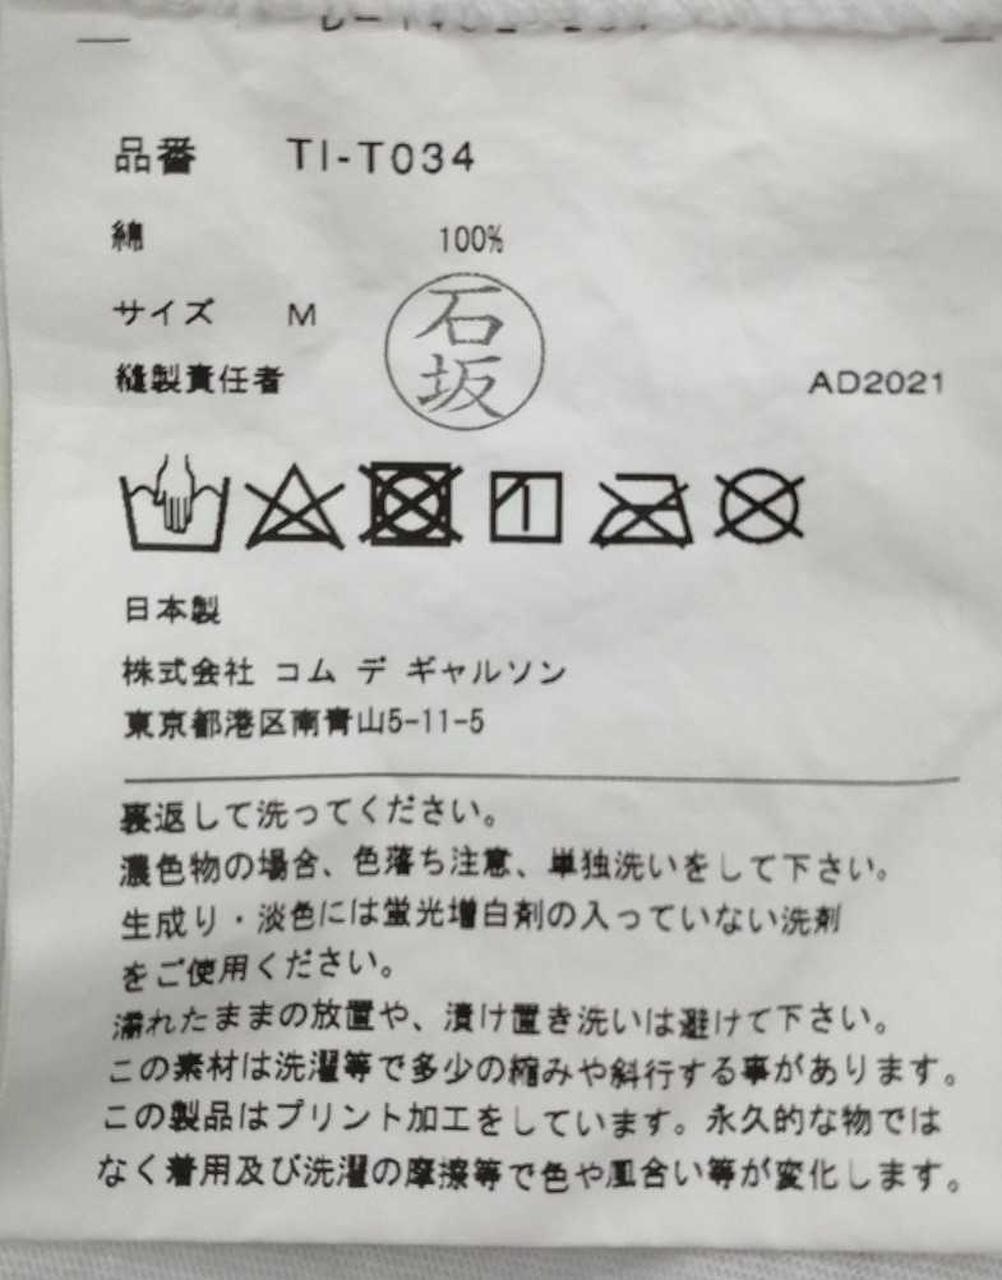 品番 TI-T034
綿 100%
サイズ M
石坂
縫製責任者 AD2021
日本製
株式会社 コム デ ギャルソン
東京都港区南青山5-11-5
裏返して洗ってください。
濃色物の場合、色落ち注意、単独洗いをして下さい。
生成り・淡色には蛍光増白剤の入っていない洗剤
をご使用ください。
濡れたままの放置や、漬け置き洗いは避けて下さい。
この素材は洗濯等で多少の縮みや斜行する事があります。
この製品はプリント加工をしています。永久的な物では
なく着用及び洗濯の摩擦等で色や風合い等が変化します。